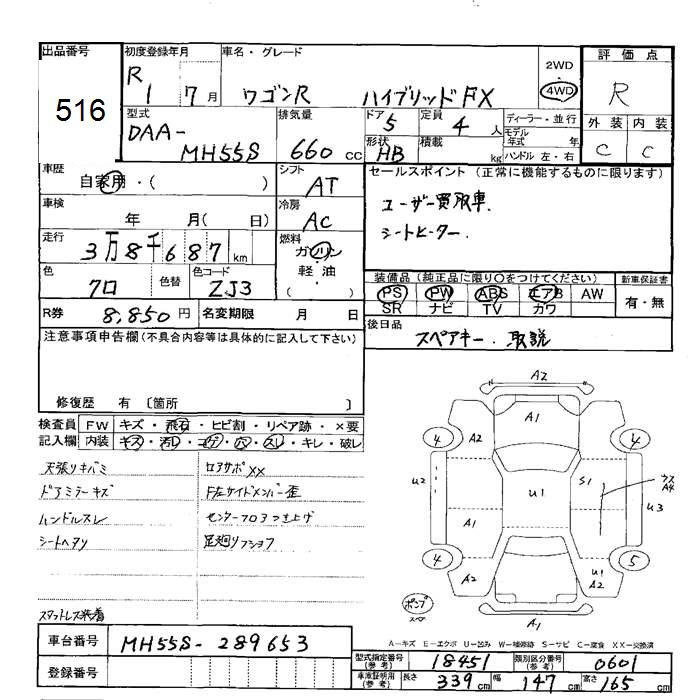 出品番号
516
初度登録年月
R 1 7 月
車名・グレード
ワゴンR ハイブリッドFX
2WD
4WD
評価点
R
外装 内装
C C
型式
DAA-
MH55S
排気量
660 cc
ドア
5
定員
4 人
形状
HB
積載
kg
ディーラー・並行
モデル年式 年
ハンドル 左・右
車歴
自家用・( )
シフト
AT
車検
年 月( 日)
冷房
AC
走行
3万8千687 km
燃料
ガソリン
軽・油
( )
色
クロ
色替
色コード
ZJ3
R券 8,850 円
名変期限 月 日
セールスポイント (正常に機能するものに限ります)
ユーザー買取車.
シートヒーター.
装備品 (純正品に限り○をつけてください)
新車保証書
PS PW ABS エアB AW
SR ナビ TV カワ
有・無
後日品
スペアキー・取説
注意事項申告欄(不具合内容等は具体的に記入して下さい)
修復歴 有 〔箇所 〕
検査員記入欄
FW キズ・飛石・ヒビ割・リペア跡・×要
内装 キズ・汚レ・コゲ・穴・スレ・キレ・破レ
天張リキバミ
ロアサポXX
ドアミラーキズ
F左サイドメンバー歪
ハンドルスレ
センターフロアつき上げ
シートヘタリ
足廻リフショク
スタットレス装着
A2
A1
4 A2 4
U2 U1 S1 ウスA4 U3
A1
4 A2 A2 U1 5
ポンプ
スペ
A1
A-キズ E-エクボ U-凹み W-補修跡 S-サビ C-腐食 XX-交換済
車台番号 MH55S-289653
登録番号
型式指定番号(参考) 18451
類別区分番号(参考) 0601
車庫証明用(参考) 長さ 339 cm 幅 147 cm 高さ 165 cm